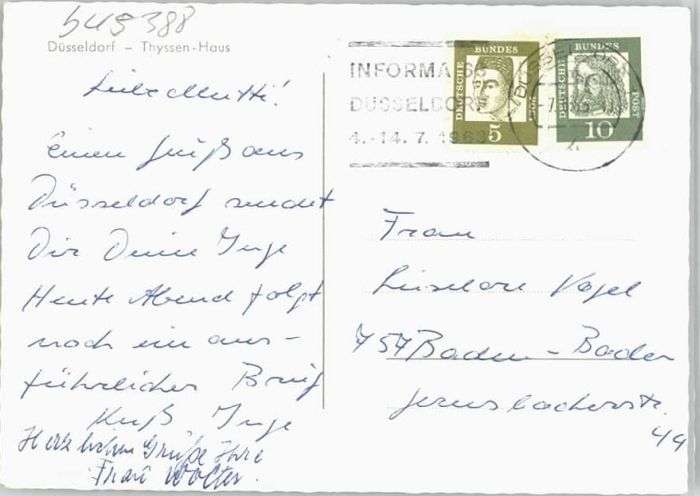 645388
Düsseldorf – Thyssen-Haus
Liebe Mutti!
Einen Gruß aus
Düsseldorf sendet
Dir Deine Inge
Heute Abend folgt
noch ein aus-
führlicher Brief
Kuß Inge
Herzlichen Grüße Ihre
Frau Wolter.
INFORMA 63
DÜSSELDORF
4.-14. 7. 1963
DEUTSCHE
BUNDES
POST
5
DEUTSCHE
BUNDES
POST
10
Frau
Liselore Vogel
757 Baden-Baden
44